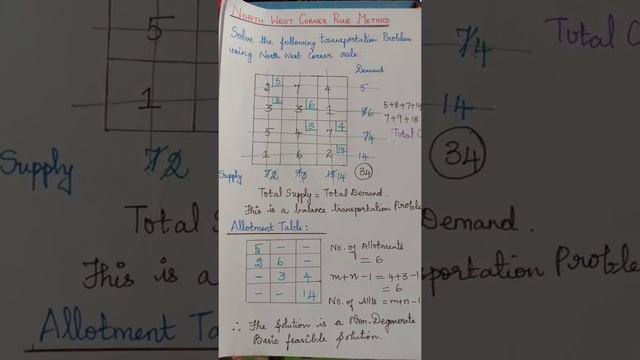 North West Corner Rule Method
Solve the following transportation Problem
using North West Corner rule.
Demand
2 5 7 4 5
3 2 3 6 1 8 6
5 4 3 7 4 7 4
1 6 2 14 14
Supply 7 2 9 3 18 14 34
5+8+7+14
7+9+18
Total C
Total Supply = Total Demand.
This is a balance transportation Proble
Allotment Table:
5 - -
2 6 -
- 3 4
- - 14
No. of Allotments
= 6
m+n-1 = 4+3-1
= 6
No. of Allo = m+n-1
∴ The Solution is a Non-Degenerate
Basic feasible Solution.
5
1
Supply 7 2
Total S
This is a
Allotment Ta
7 4
Total C
14
34
Demand.
portation Proble